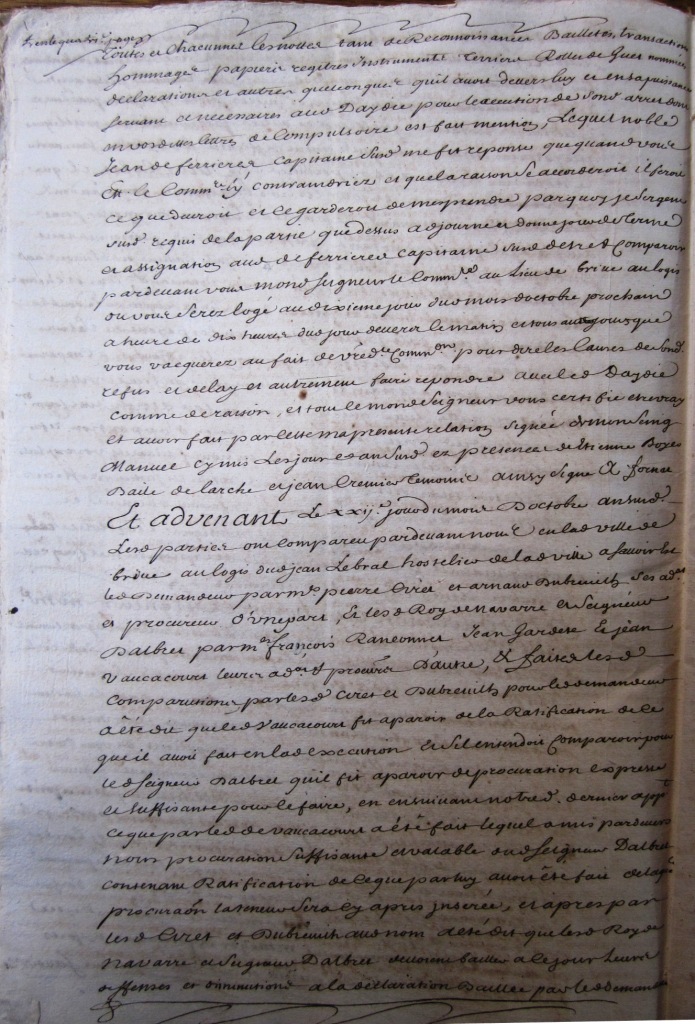 trente quatre pages
Toutes et Chacunnes les nottes tant de Reconnoissances Bailletes, transactions
hommages papiers regitres Instruments terriers Rolles de
declarations et autres quelconques qu'il avoit devers luy et en sa puissance
servant et necessaires aud Daydie pour l'execution de sond arret dont
en vosd lettres de Compulsoire est fait mention, Lequel noble
Jean de ferrieres Capitaine susd me fit reponse que quand vous
le Commre. contraindriez et que la raison se accorderoit il feroit
ce que devroit et se garderoit de meprendre parquoy je sergent
susd. requis de la partie que dessus a djourne et donne jour de terme
et assignation aud de ferrieres Capitaine susd d'etre et Comparoir
pardevant vous mond seigneur le Commre. au lieu de brive au logis
ou vous serez logé au dixieme jour du mois doctobre prochain
a heure de dix heures dud jour devers le matin et tous autres jours que
vous vacquerez au fait de vred. Comm.on pour dire les causes de sond.
refus et delay et autrement faire repondre avec led Daydie
comme de raison, et tout le mond seigneur vous certifie etre vray
et avoir fait par cette ma presente relation signée de mon seing
Manuel cy mis Les jour et an susd ez presence de Etienne Boyer
Baile de larche et jean Cremier temoins ainsy signe
Et advenant Le xxij.e jour du mois Doctobre an susd.
Lesd parties ont comparu pardevant nous en lad ville de
brive au logis dud jean Lebrat hostelier de lad ville a savoir est
led Demandeur par mes pierre Ciret et arnaud Dubreuilh ses ad.ts
et procureur d'une part, Et lesd Roy de navarre et Seigneur
Dalbret par me. françois Ranconnet Jean Gardete Et jean
Vaucacourt leurs ad.ts & procureur D'autre, & faite lesd
Comparutions par lesd Ciret et Dubreuilh pour led demandeur
a été dit que led Vaucacourt fit aparoir de la Ratification de ce
que il avoit fait en lad execution Et s'il entendoit Comparoir pour
led seigneur Dalbret qu'il fit aparoir de procuration expresse
et suffisante pour le faire, en ensuivant notred. dernier app.t
ce que par led de vaucacourt a été fait lequel a mis pardevers
nous procuration suffisante et valable dud seigneur Dalbret
contenant Ratification de ce que par luy avoit été fait de laq.le
procuraon la teneur sera cy après jnserée, et après par
lesd Ciret et Dubreuilh aud nom a été dit que lesd Roy de
navarre et seigneur Dalbret devoient bailler a ce jour leurs
deffenses et diminutions a la declaration Baillée par led demandeur